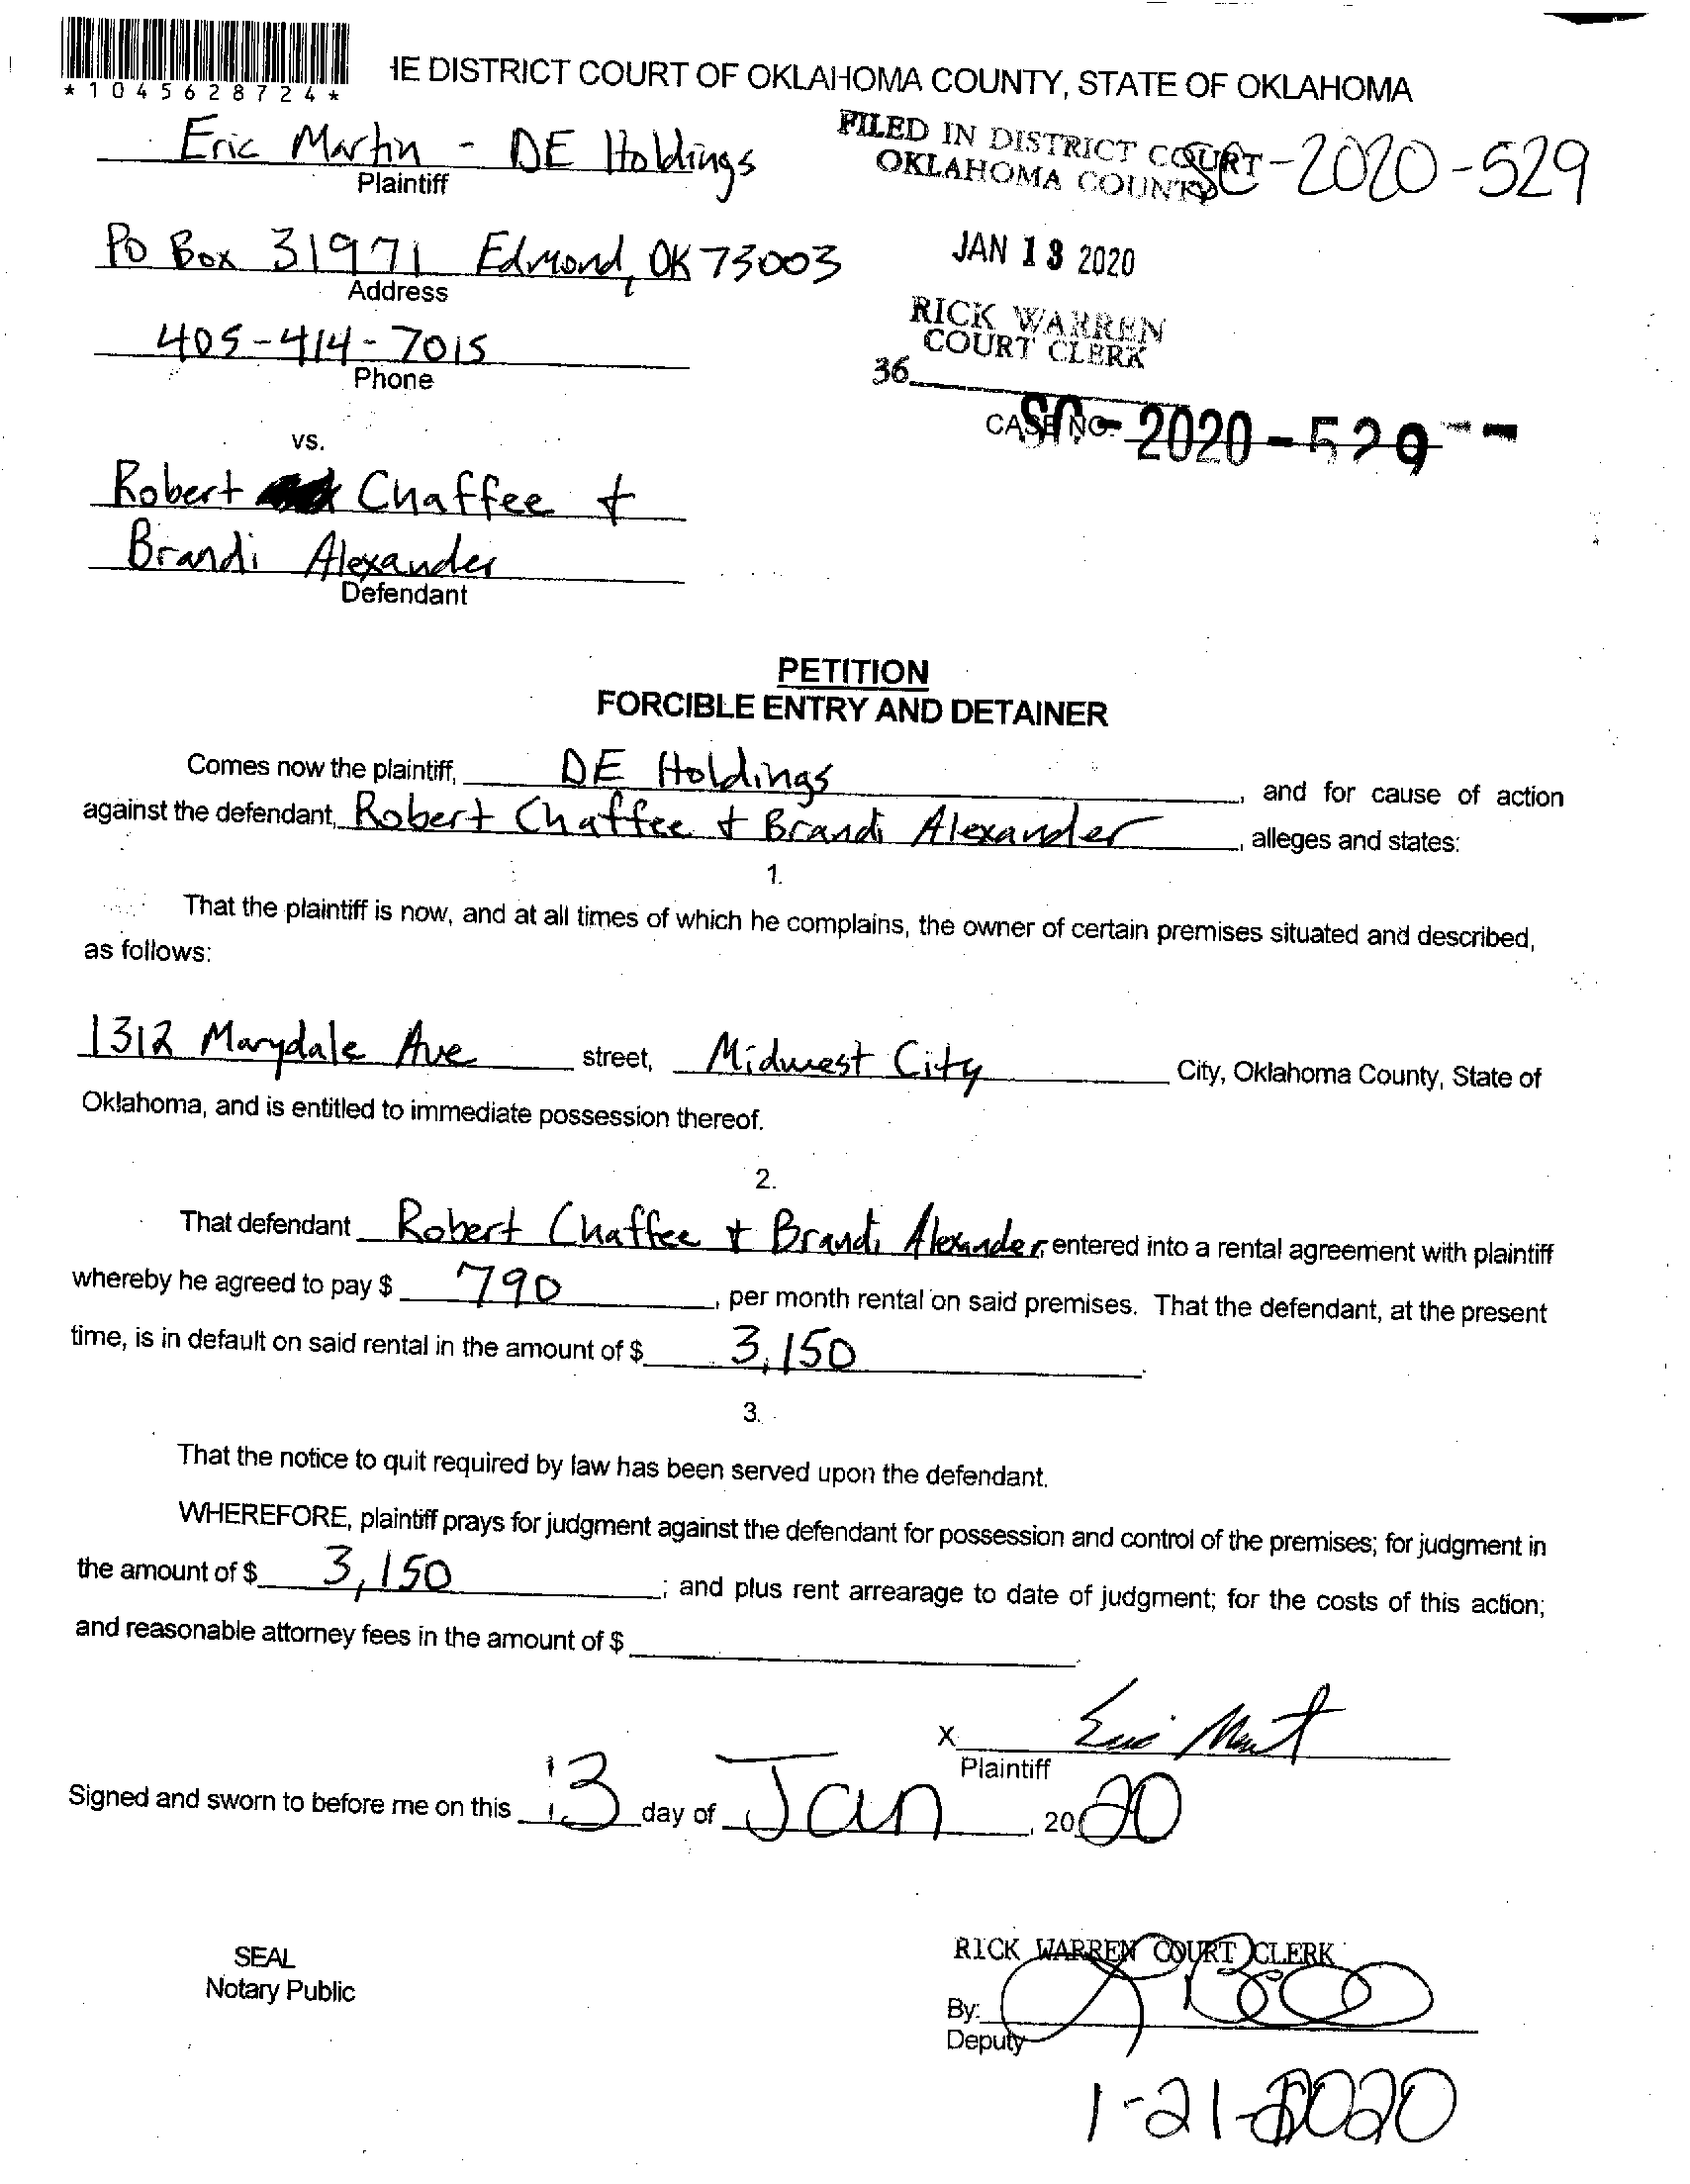 *1045628724*
HE DISTRICT COURT OF OKLAHOMA COUNTY, STATE OF OKLAHOMA
Eric Martin - DE Holdings
Plaintiff
FILED IN DISTRICT COURT
OKLAHOMA COUNTY
SC-2020-529
PO Box 31971 Edmond, OK 73003
Address
JAN 13 2020
405-414-7015
Phone
RICK WARREN
COURT CLERK
36
CASE NO. SC-2020-529--
vs.
Robert Chaffee +
Brandi Alexander
Defendant
PETITION
FORCIBLE ENTRY AND DETAINER
Comes now the plaintiff, DE Holdings, and for cause of action
against the defendant, Robert Chaffee + Brandi Alexander, alleges and states:
1.
That the plaintiff is now, and at all times of which he complains, the owner of certain premises situated and described,
as follows:
1312 Marydale Ave street, Midwest City City, Oklahoma County, State of
Oklahoma, and is entitled to immediate possession thereof.
2.
That defendant Robert Chaffee + Brandi Alexander, entered into a rental agreement with plaintiff
whereby he agreed to pay $ 790, per month rental on said premises. That the defendant, at the present
time, is in default on said rental in the amount of $ 3,150.
3.
That the notice to quit required by law has been served upon the defendant.
WHEREFORE, plaintiff prays for judgment against the defendant for possession and control of the premises; for judgment in
the amount of $ 3,150; and plus rent arrearage to date of judgment; for the costs of this action;
and reasonable attorney fees in the amount of $
X Eric Mart
Plaintiff
Signed and sworn to before me on this 13 day of Jan, 2020
SEAL
Notary Public
RICK WARREN COURT CLERK
By:
Deputy
1-21-2020